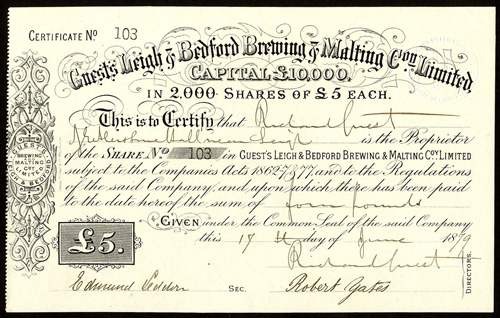 CERTIFICATE Nº 103
Guest's Leigh & Bedford Brewing & Malting Coy. Limited.
CAPITAL £10,000.
IN 2,000 SHARES OF £5 EACH.
This is to Certify that Richard Guest
near Leigh is the Proprietor
of the SHARE Nº 103 in GUEST'S LEIGH & BEDFORD BREWING & MALTING COY. LIMITED
subject to the Companies Acts 1862 & 77, and to the Regulations
of the said Company, and upon which there has been paid
to the date hereof the sum of four pounds
GIVEN under the Common Seal of the said Company
this 17th day of June 1879
£5.
Richard Guest
Edmund SEC. Robert Yates
DIRECTORS.
GUEST'S
BREWING
&
MALTING
LIMITED
LEIGH & BEDFORD